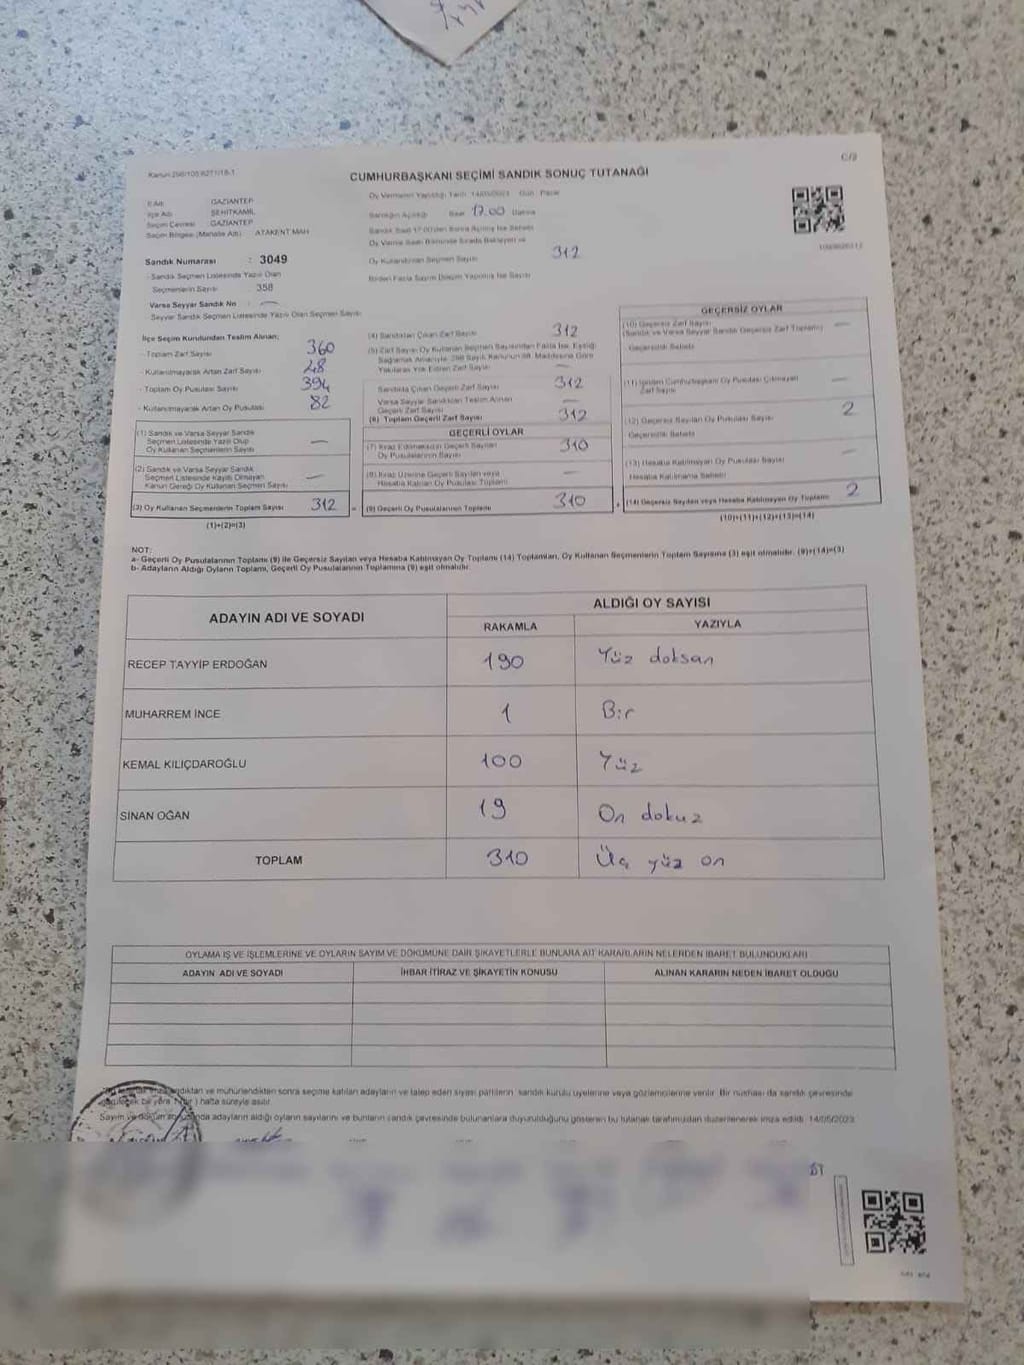 C/3
Kanun:298/105,6271/18-1
CUMHURBAŞKANI SEÇİMİ SANDIK SONUÇ TUTANAĞI
İl Adı GAZİANTEP
İlçe Adı ŞEHİTKAMİL
Seçim Çevresi GAZİANTEP
Seçim Bölgesi (Mahalle Adı) ATAKENT MAH
Oy Vermenin Yapıldığı Tarih 14/05/2023 Gün Pazar
Sandığın Açıldığı Saat 17.00
Oy Kullandıran Seçmen Sayısı 312
Sandık Numarası : 3049
- Sandık Seçmen Listesinde Yazılı Olan
Seçmenlerin Sayısı 358
Varsa Seyyar Sandık No : —
Seyyar Sandık Seçmen Listesinde Yazılı Olan Seçmen Sayısı:
İlçe Seçim Kurulundan Teslim Alınan;
- Toplam Zarf Sayısı 360
- Kullanılmayarak Artan Zarf Sayısı 48
- Toplam Oy Pusulası Sayısı 394
- Kullanılmayarak Artan Oy Pusulası 82
(1) Sandık ve Varsa Seyyar Sandık
Seçmen Listesinde Yazılı Olup
Oy Kullanan Seçmenlerin Sayısı —
(2) Sandık ve Varsa Seyyar Sandık
Seçmen Listesinde Kayıtlı Olmayan
Kanun Gereği Oy Kullanan Seçmen Sayısı —
(3) Oy Kullanan Seçmenlerin Toplam Sayısı 312
(1)+(2)=(3)
(4) Sandıktan Çıkan Zarf Sayısı 312
(5) Zarf Sayısı Oy Kullanan Seçmen Sayısından Fazla İse, Eşitliği
Sağlamak Amacıyla, 298 Sayılı Kanunun 98. Maddesine Göre
Yakılarak Yok Edilen Zarf Sayısı —
Sandıkta Çıkan Geçerli Zarf Sayısı 312
Varsa Seyyar Sandıktan Teslim Alınan
Geçerli Zarf Sayısı —
(6) Toplam Geçerli Zarf Sayısı 312
GEÇERLİ OYLAR
(7) İtiraz Edilmeksizin Geçerli Sayılan
Oy Pusulalarının Sayısı 310
(8) İtiraz Üzerine Geçerli Sayılan veya
Hesaba Katılan Oy Pusulası Toplamı —
(9) Geçerli Oy Pusulalarının Toplamı 310
GEÇERSİZ OYLAR
(10) Geçersiz Zarf Sayısı
(Sandık ve Varsa Seyyar Sandık Geçersiz Zarf Toplamı) —
Geçersizlik Sebebi
(11) İçinden Cumhurbaşkanı Oy Pusulası Çıkmayan
Zarf Sayısı —
(12) Geçersiz Sayılan Oy Pusulası Sayısı 2
Geçersizlik Sebebi
(13) Hesaba Katılmayan Oy Pusulası Sayısı —
Hesaba Katılmama Sebebi
(14) Geçersiz Sayılan veya Hesaba Katılmayan Oy Toplamı 2
(10)+(11)+(12)+(13)=(14)
NOT:
a- Geçerli Oy Pusulalarının Toplamı (9) ile Geçersiz Sayılan veya Hesaba Katılmayan Oy Toplamı (14) Toplamları, Oy Kullanan Seçmenlerin Toplam Sayısına (3) eşit olmalıdır. (9)+(14)=(3)
b- Adayların Aldığı Oyların Toplamı, Geçerli Oy Pusulalarının Toplamına (9) eşit olmalıdır.
ADAYIN ADI VE SOYADI ALDIĞI OY SAYISI
RAKAMLA YAZIYLA
RECEP TAYYİP ERDOĞAN 190 Yüz doksan
MUHARREM İNCE 1 Bir
KEMAL KILIÇDAROĞLU 100 Yüz
SİNAN OĞAN 19 On dokuz
TOPLAM 310 Üç yüz on
OYLAMA İŞ VE İŞLEMLERİNE VE OYLARIN SAYIM VE DÖKÜMÜNE DAİR ŞİKAYETLERLE BUNLARA AİT KARARLARIN NELERDEN İBARET BULUNDUKLARI
ADAYIN ADI VE SOYADI İHBAR İTİRAZ VE ŞİKAYETİN KONUSU ALINAN KARARIN NEDEN İBARET OLDUĞU
ve mühürlendikten sonra seçime katılan adayların ve talep eden siyasi partilerin sandık kurulu üyelerine veya gözlemcilerine verilir. Bir nüshası da sandık çevresinde
hafta süreyle asılır.
Sayım ve döküm adayların aldığı oyların sayılarını ve bunların sandık çevresinde bulunanlara duyurulduğunu gösteren bu tutanak tarafımızdan düzenlenerek imza edildi. 14/05/2023